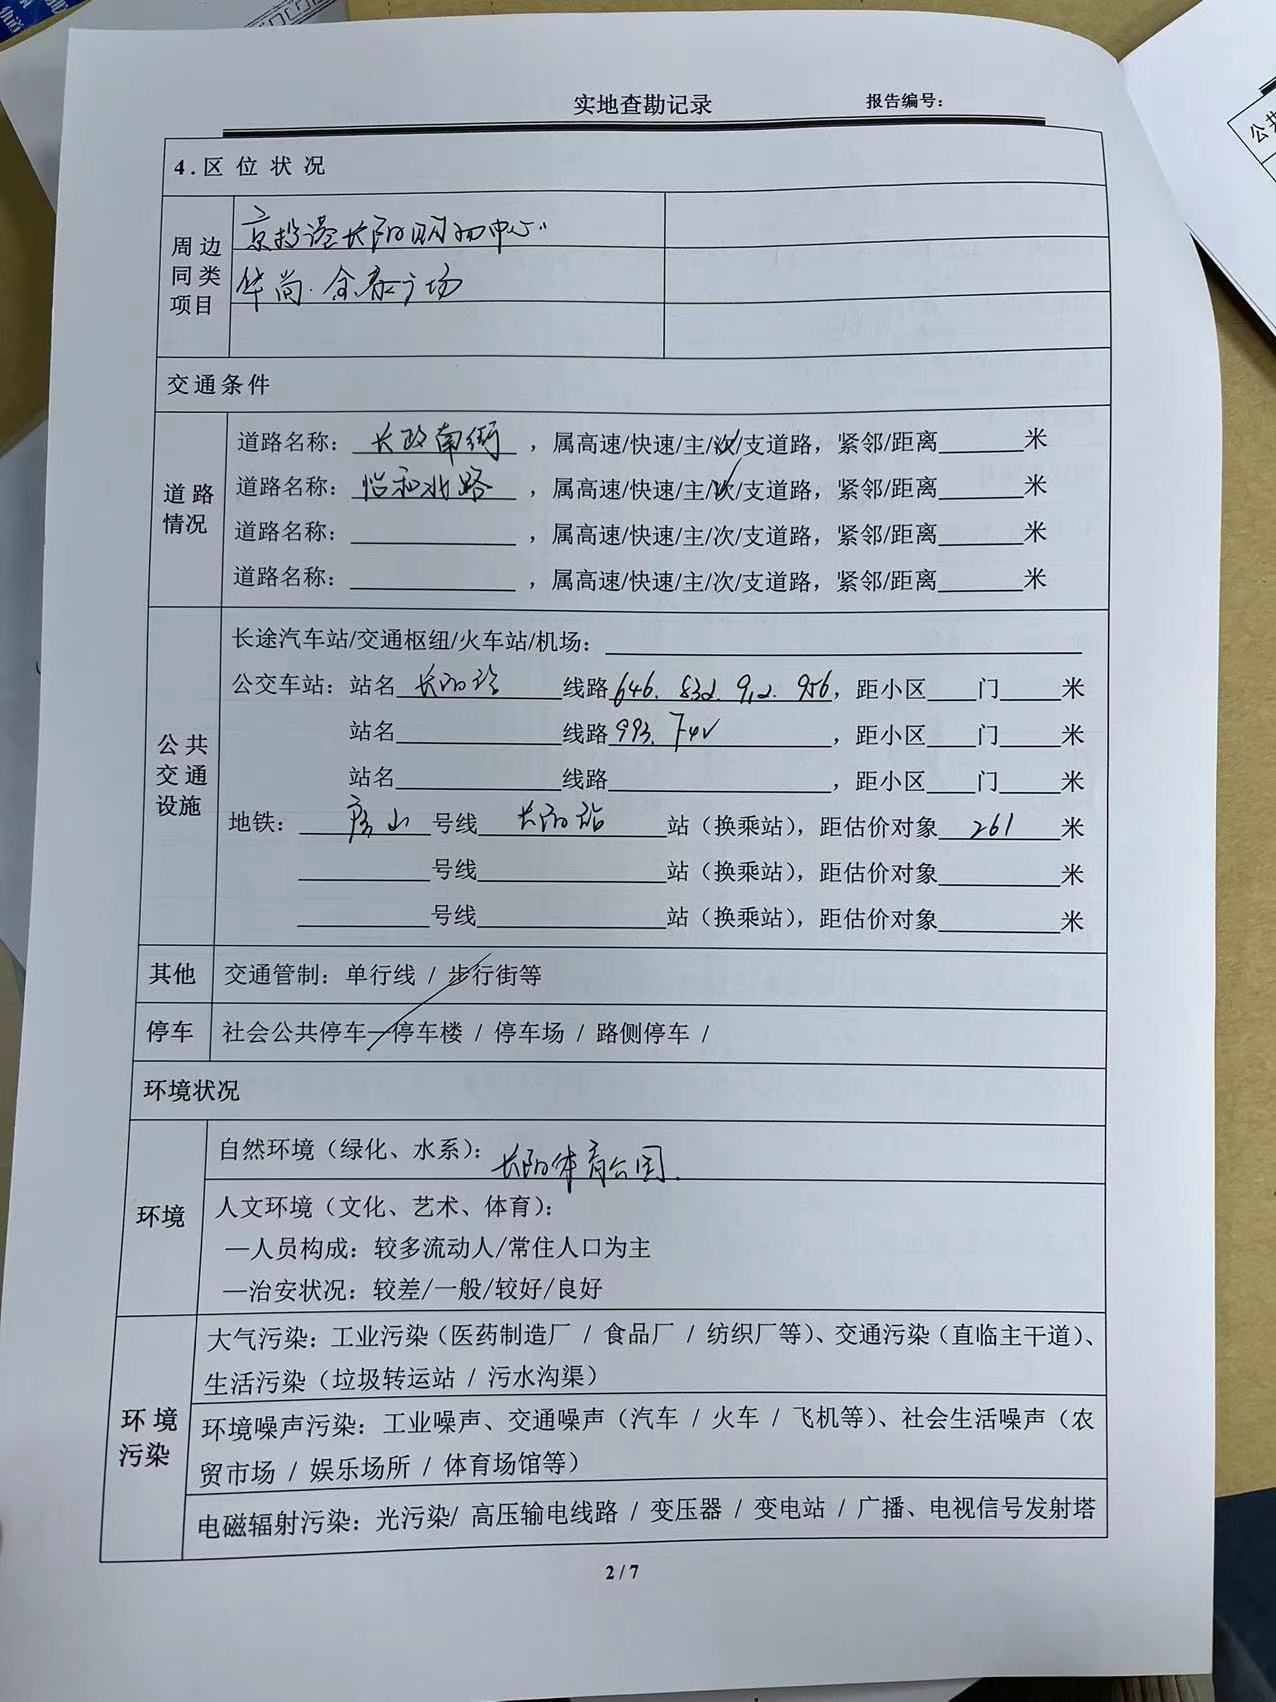 实地查勘记录 报告编号：
4.区 位 状 况
周 边
同 类
项目
京投港长阳购物中心
华尚·余泰广场
交通条件
道 路
情况
道路名称：长政南街，属高速/快速/主/次/支道路，紧邻/距离______米
道路名称：怡和北路，属高速/快速/主/次/支道路，紧邻/距离______米
道路名称：____________，属高速/快速/主/次/支道路，紧邻/距离______米
道路名称：____________，属高速/快速/主/次/支道路，紧邻/距离______米
公 共
交 通
设施
长途汽车站/交通枢纽/火车站/机场：____________
公交车站：站名 长阳站 线路 646. 832. 912. 956，距小区____门____米
站名____________线路 993. F41，距小区____门____米
站名____________线路____________，距小区____门____米
地铁：房山 号线 长阳站 站（换乘站），距估价对象 261 米
______号线____________站（换乘站），距估价对象______米
______号线____________站（换乘站），距估价对象______米
其他 交通管制：单行线 / 步行街等
停车 社会公共停车—停车楼 / 停车场 / 路侧停车 /
环境状况
环境
自然环境（绿化、水系）：长阳体育公园.
人文环境（文化、艺术、体育）：
—人员构成：较多流动人/常住人口为主
—治安状况：较差/一般/较好/良好
环 境
污染
大气污染：工业污染（医药制造厂 / 食品厂 / 纺织厂等）、交通污染（直临主干道）、
生活污染（垃圾转运站 / 污水沟渠）
环境噪声污染：工业噪声、交通噪声（汽车 / 火车 / 飞机等）、社会生活噪声（农
贸市场 / 娱乐场所 / 体育场馆等）
电磁辐射污染：光污染/ 高压输电线路 / 变压器 / 变电站 / 广播、电视信号发射塔
2 / 7
公共